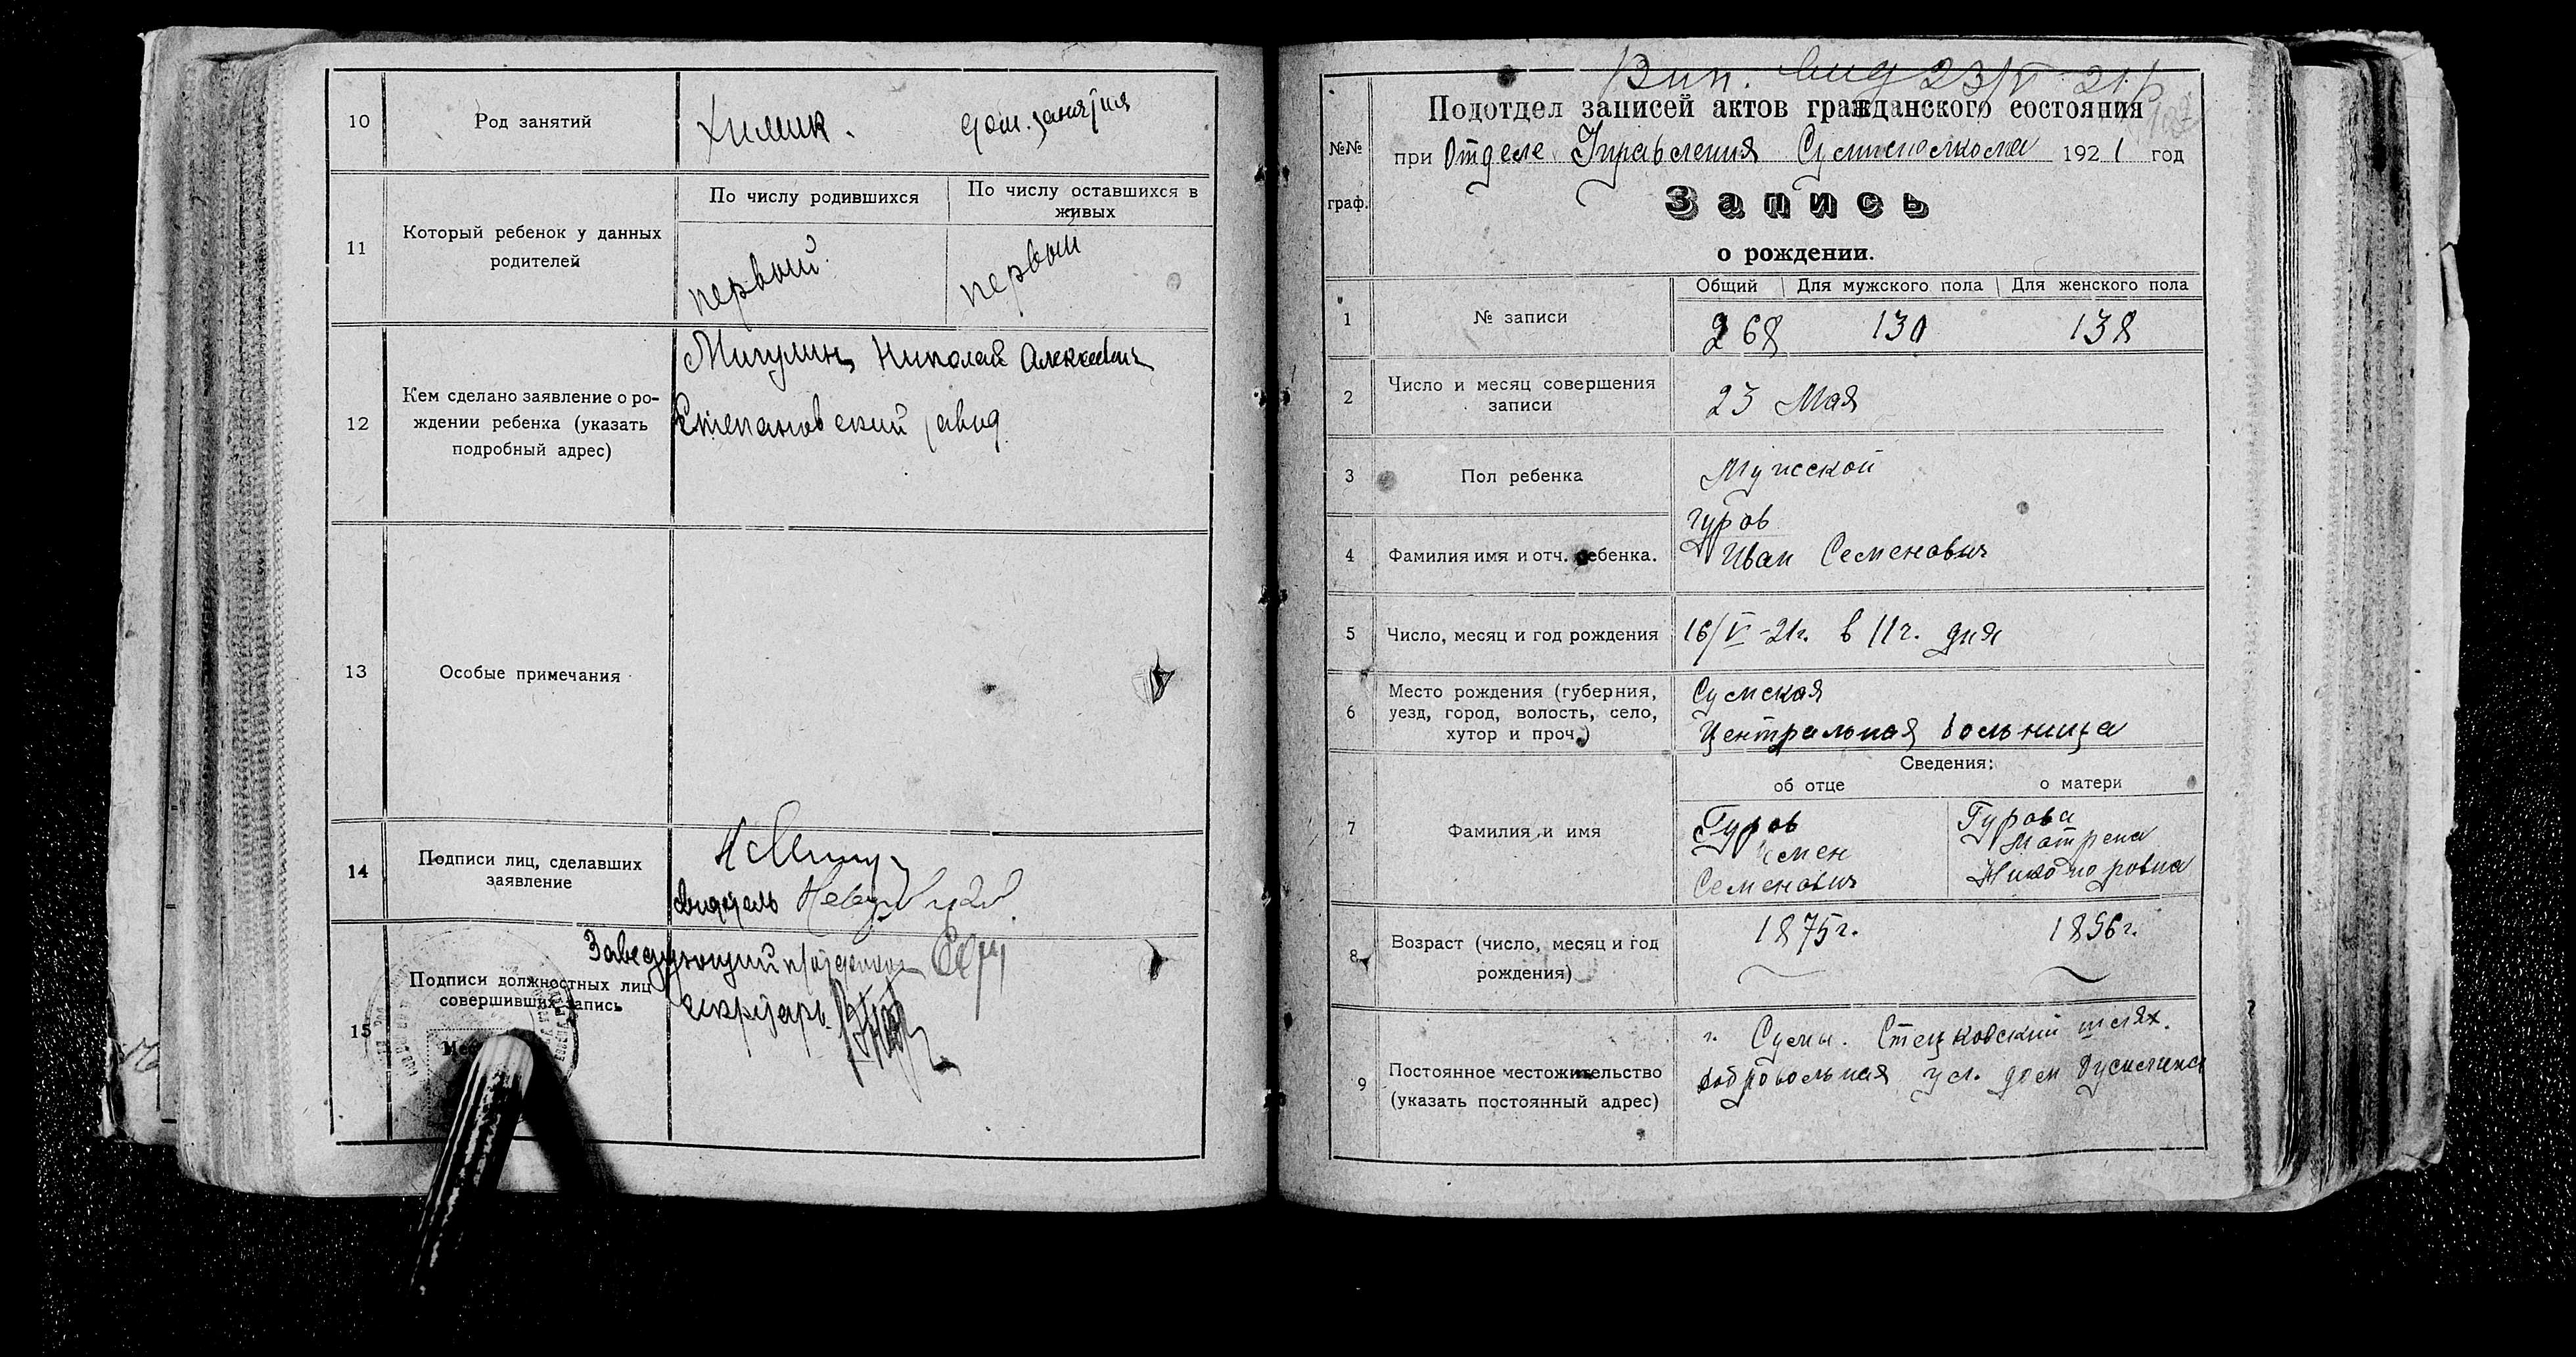 10
Род занятий
Химик.
дом. занятия
11
Который ребенок у данных
родителей
По числу родившихся
По числу оставшихся в
живых
первый
первый
12
Кем сделано заявление о ро-
ждении ребенка (указать
подробный адрес)
Мигулин Николай Алексеевич
Степановский завод
13
Особые примечания
14
Подписи лиц, сделавших
заявление
15
Подписи должностных лиц
совершивших запись
Заведующий
секретарь
23/V 21
Подотдел записей актов гражданского состояния
№№
граф.
при Отделе Управления 1921 год
Запись
о рождении.
1
№ записи
Общий
Для мужского пола
Для женского пола
268
130
138
2
Число и месяц совершения
записи
23 Мая
3
Пол ребенка
Мужской
4
Фамилия имя и отч. ребенка.
Гуров
Иван Семенович
5
Число, месяц и год рождения
16/V-21г. в 11 ч. дня
6
Место рождения (губерния,
уезд, город, волость, село,
хутор и проч.)
Сумская
Центральная больница
Сведения:
об отце
о матери
7
Фамилия и имя
Гуров
Семен
Семенович
Гурова
Матрена
8
Возраст (число, месяц и год
рождения)
1875г.
9
Постоянное местожительство
(указать постоянный адрес)
г. Сумы. Стецковский шлях.
Добровольная ул. дом